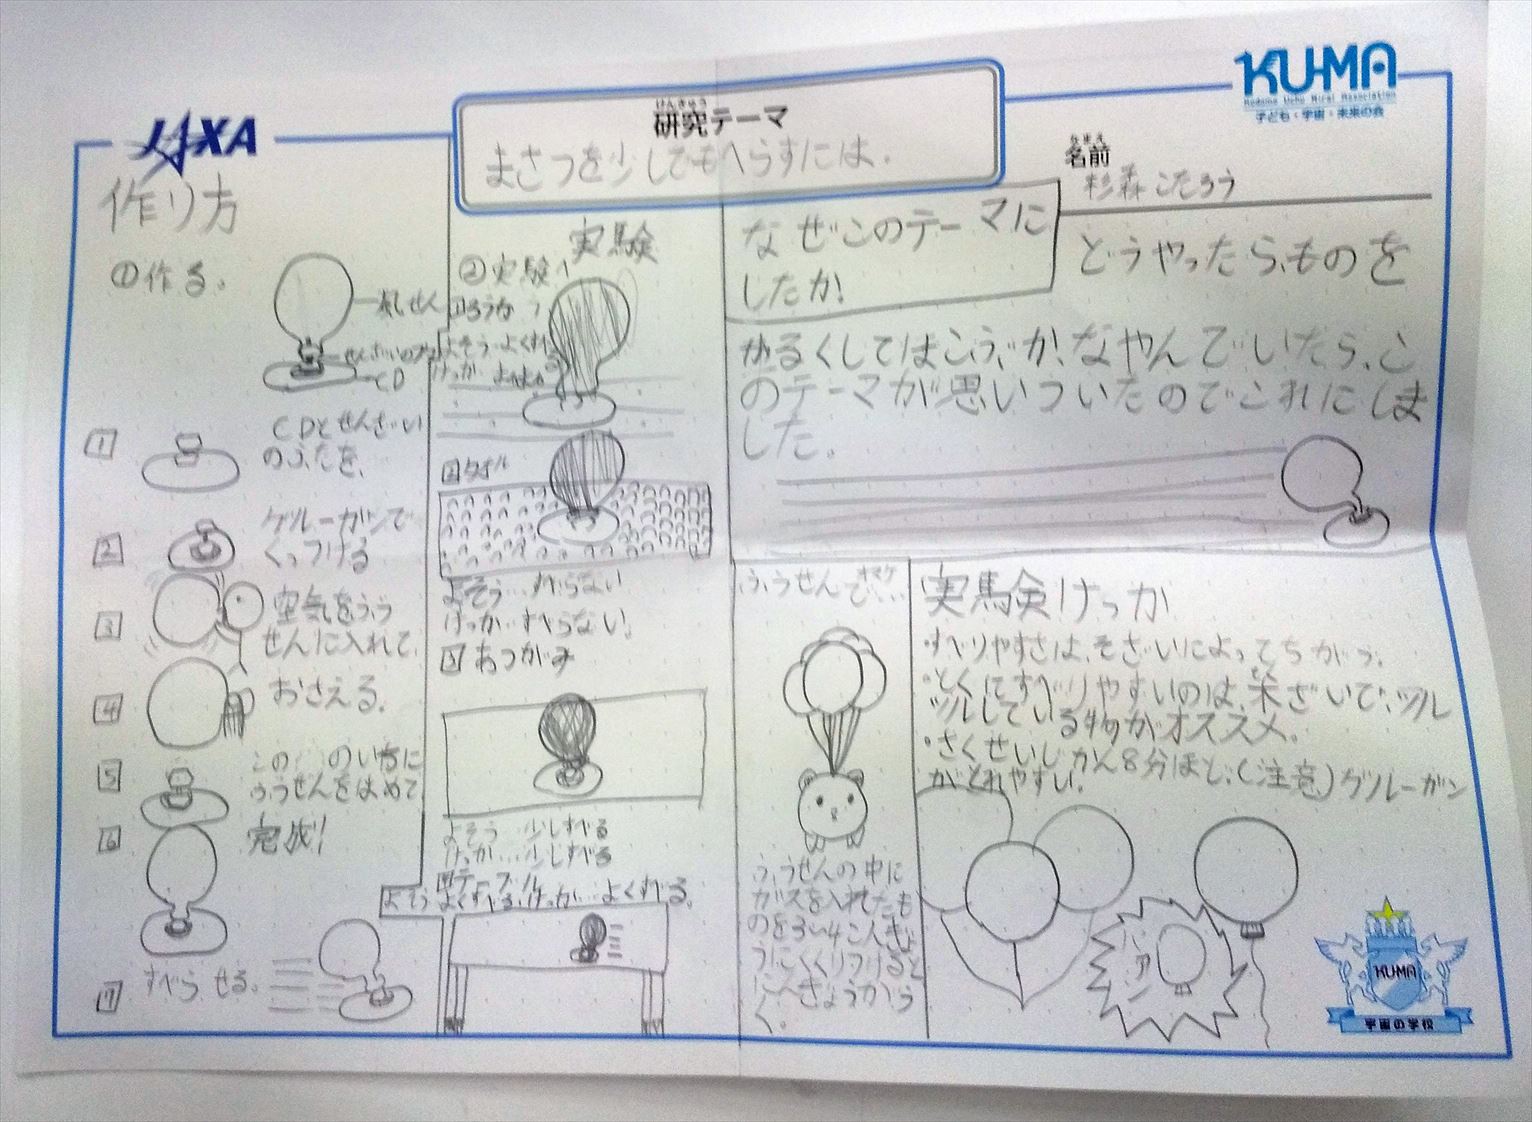 JAXA
KU-MA
Kodomo Uchu Mirai Association
子ども・宇宙・未来の会
けんきゅう
研究テーマ
まさつを少しでもへらすには.
なまえ
名前
杉森こたろう
作り方
①作る.
風せん
せんざいのフタ
CD
1
CDとせんざい
のふたを、
2
グルーガンで
くっつける
3
空気をふう
せんに入れて、
4
おさえる.
5
この のいちに
ふうせんをはめて
6
完成!
7
すべらせる.
実験
②実験
1ろうか
よそう…よくすべる
けっか…
2タオル
よそう…すべらない
けっか…すべらない.
3あつがみ
よそう…少しすべる
けっか…少しすべる
4テーブル
よそう…よくすべる.けっか…よくすべる.
なぜこのテーマに
したか!
どうやったら、ものを
かるくしてはこぶか、なやんでいたら、こ
のテーマが思いついたのでこれにしま
した。
ふうせんで…
オマケ
ふうせんの中に
ガスを入れたも
のを3〜4こ人ぎょ
うにくくりつけると
にんぎょうがう
く.
実験けっか
・すべりやすさは、そざいによってちがう.
・とくにすべりやすいのは、木ざいで、ツル
ツルしている物がオススメ。
・さくせいじかん8分ほど.(注意)グルーガン
がとれやすい.
パアン
KUMA
宇宙の学校